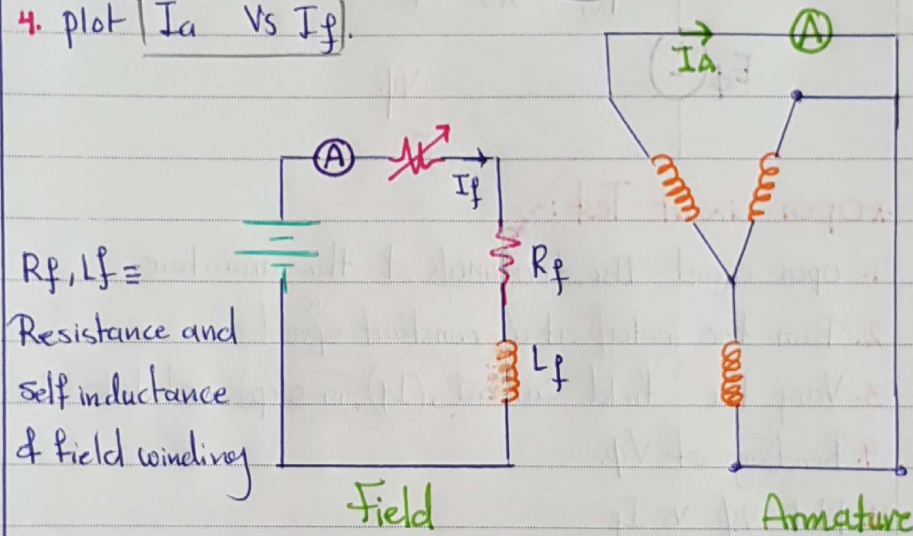 4. plot Ia Vs If.
IA
A
A
If
Rf
Lf
Rf, Lf ≡
Resistance and
self inductance
of field winding
Field
Armature